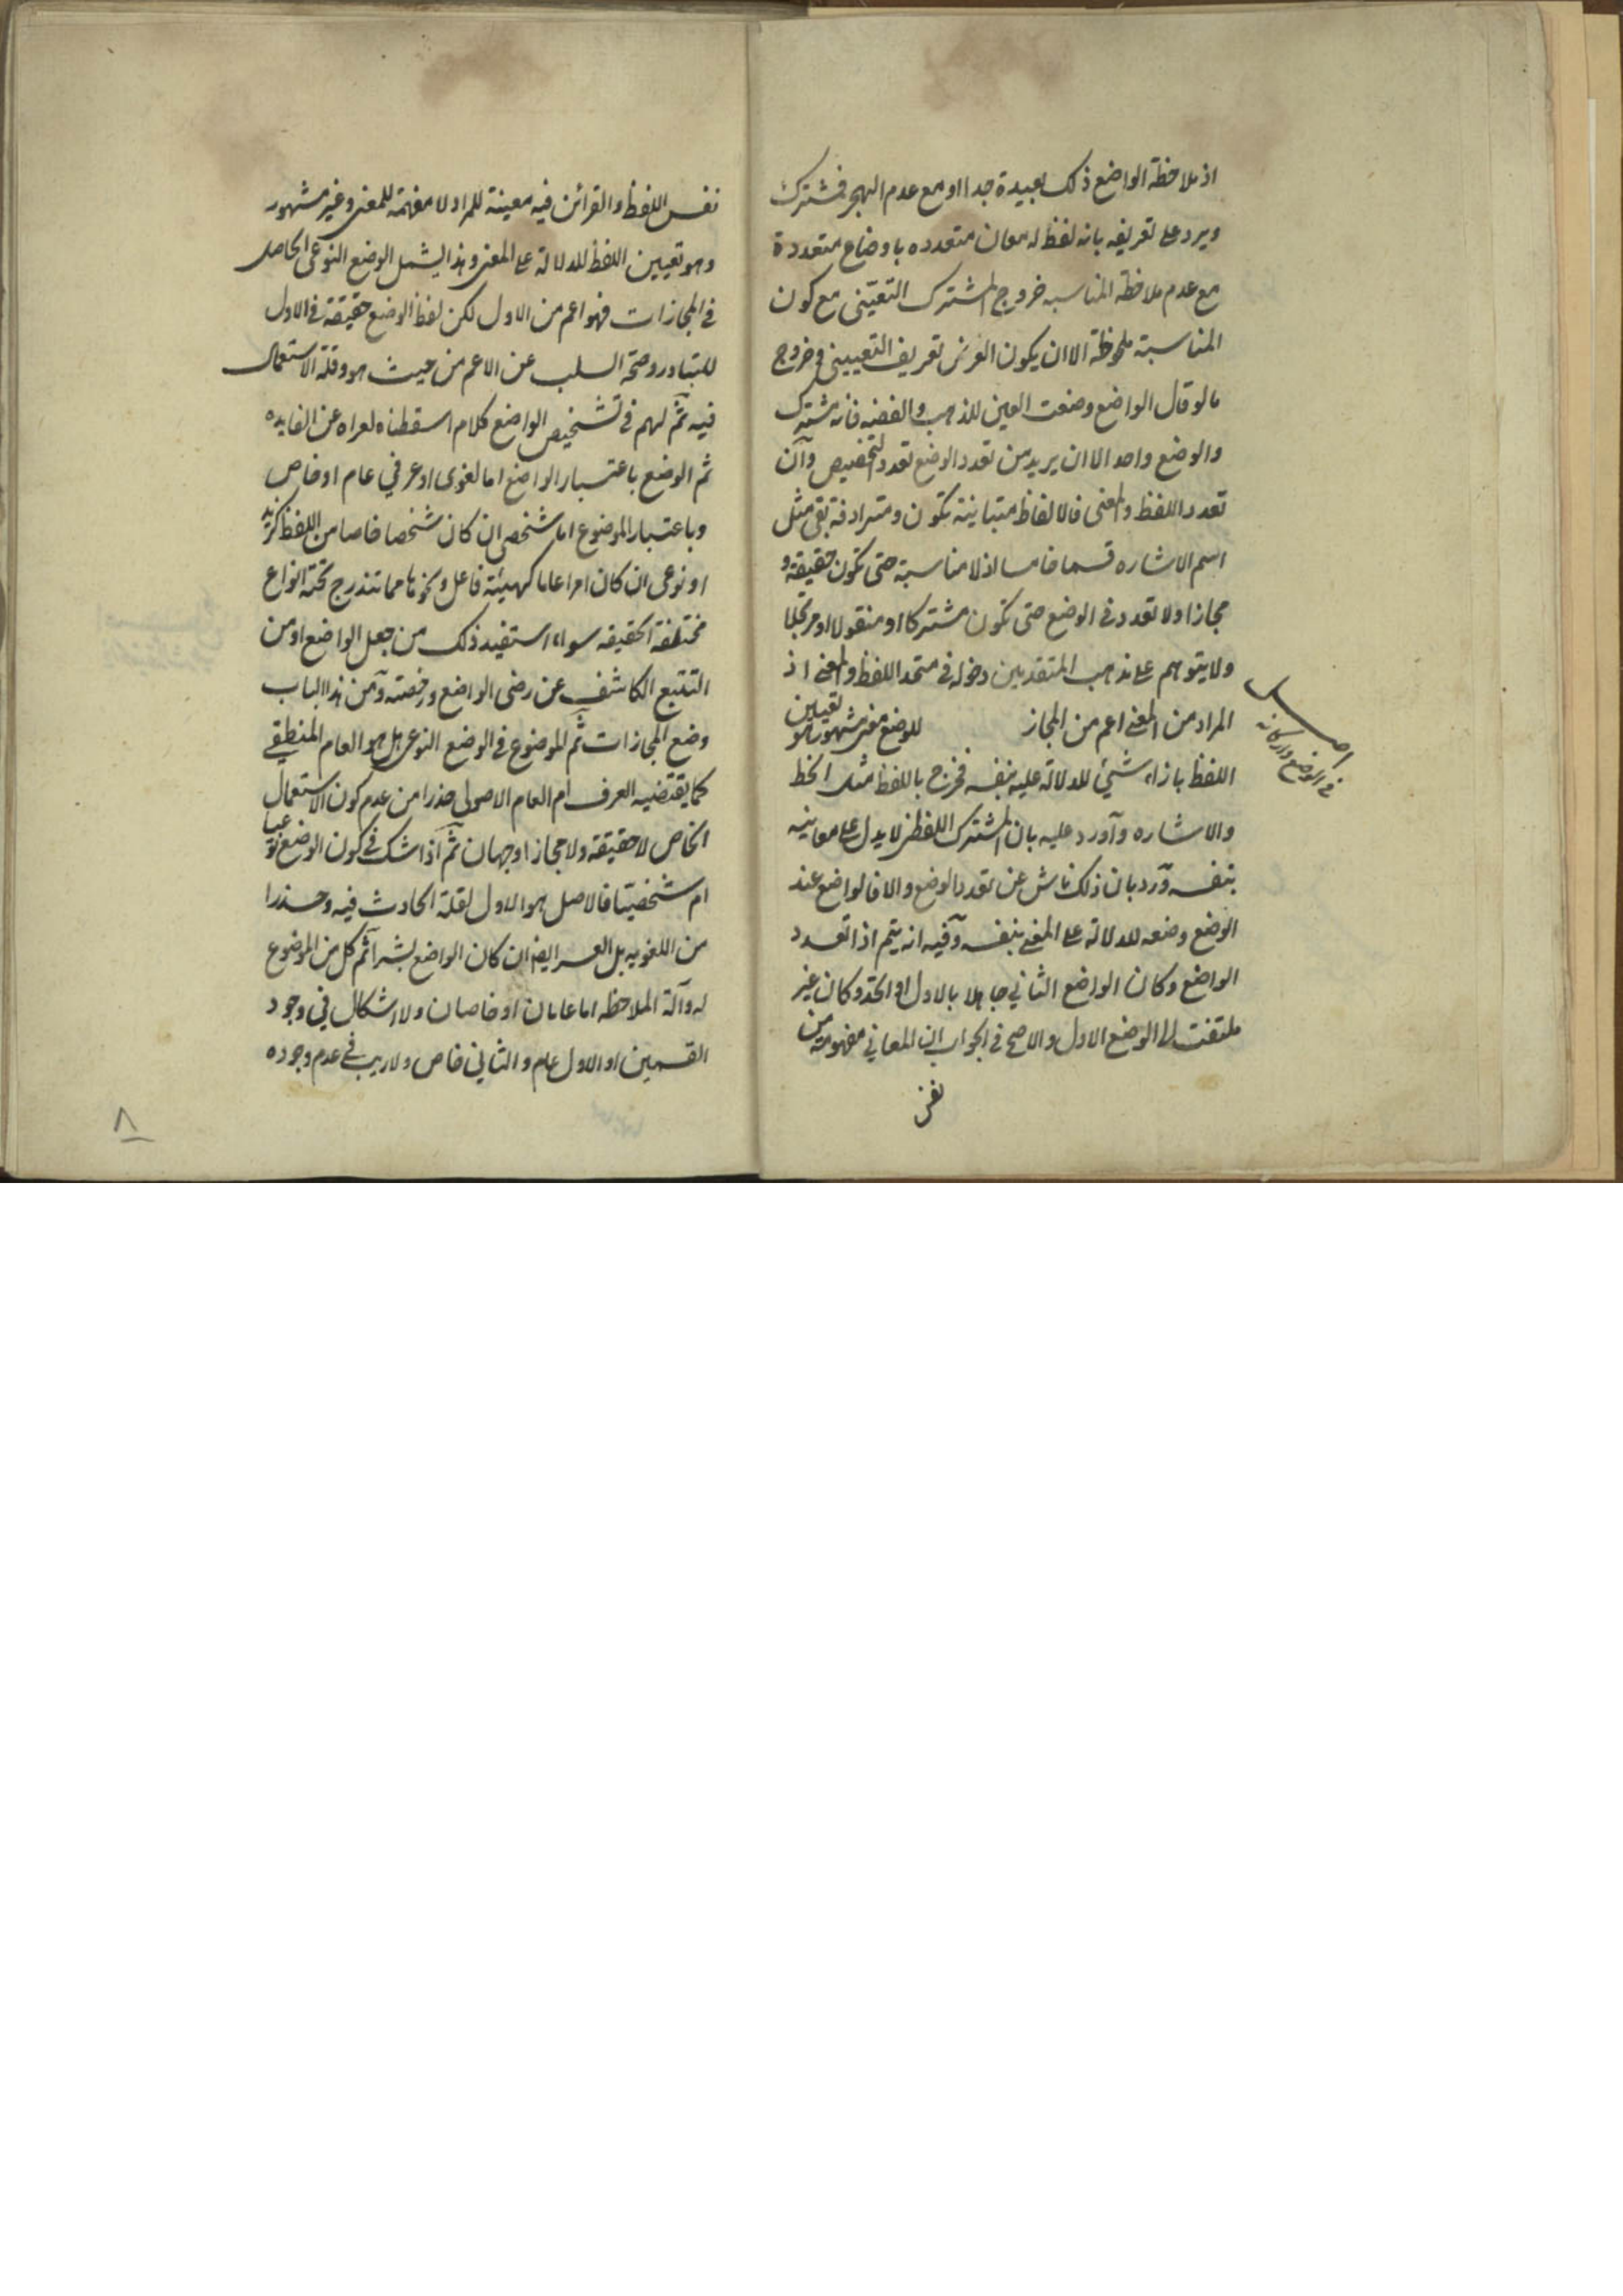 اذ ملاحظة الواضع ذلك بعيدة جدا او مع عدم الهجر فمشترك
ويرد على تعريفه بانه لفظ له معان متعدده باوضاع متعددة
مع عدم ملاحظة المناسبه خروج المشترك التعيّنى مع كون
المناسبة ملحوظة الا ان يكون الغرض تعريف التعيينى وخروج
ما لو قال الواضع وضعت العين للذهب والفضه فانه مشترك
والوضع واحد الا ان يريد من تعدد الوضع تعدد التخصيص وان
تعدد اللفظ والمعنى فالالفاظ متباينة تكون ومترادفة بقى مثل
اسم الاشاره قسما خامسا اذ لا مناسبة حتى تكون حقيقة و
مجازا ولا تعدد فى الوضع حتى تكون مشتركا او منقولا او مرتجلا
ولا يتوهم على مذهب المتقدمين دخوله فى متحد اللفظ والمعنى اذ
المراد من المعنى اعم من المجاز للوضع معنى مشهور هو تعيين
اصل
فى الوضع واركانه
اللفظ بازاء شئ للدلالة عليه بنفسه فخرج باللفظ مثل الخط
والاشاره وآورد عليه بان المشترك اللفظى لا يدل على معانيه
بنفسه ورد بان ذلك ناش عن تعدد الوضع والا فالواضع عند
الوضع وضعه للدلالة على المعنى بنفسه وفيه انه يتم اذا تعدد
الواضع وكان الواضع الثاني جاهلا بالاول او اتحد وكان غير
ملتفت الى الوضع الاول والاصح فى الجواب ان المعاني مفهومة من
نفس
نفس اللفظ والقرائن فيه معينة للمراد لا مفهمة للمعنى وغير مشهور
وهو تعيين اللفظ للدلالة على المعنى وهذا يشمل الوضع النوعى الحاصل
فى المجازات فهو اعم من الاول لكن لفظ الوضع حقيقة فى الاول
للتبادر وصحة السلب عن الاعم من حيث هو وقلة الاستعمال
فيه ثم لهم فى تشخيص الواضع كلام اسقطناه لعراه عن الفايده
ثم الوضع باعتبار الواضع اما لغوى او عرفي عام او خاص
وباعتبار الموضوع اما شخصى ان كان شخصا خاصا من اللفظ كزيد
او نوعى ان كان امرا عاما كهيئة فاعل ونحوها مما تندرج تحته انواع
مختلفة الحقيقه سواء استفيد ذلك من جعل الواضع او من
التتبع الكاشف عن رضى الواضع ورخصته ومن هذا الباب
وضع المجازات ثم الموضوع فى الوضع النوعى هل هو العام المنطقي
كما يقتضيه العرف ام العام الاصولى حذرا من عدم كون الاستعمال
الخاص لا حقيقة ولا مجازا وجهان ثم اذا شك فى كون الوضع نوعيا
ام شخصيا فالاصل هو الاول لقلة الحادث فيه وحذرا
من اللغويه بل العسر ايضا ان كان الواضع بشرا ثم كل من الموضوع
له وآلة الملاحظه اما عامان او خاصان ولا اشكال في وجود
القسمين او الاول عام والثاني خاص ولا ريب فى عدم وجوده
٨